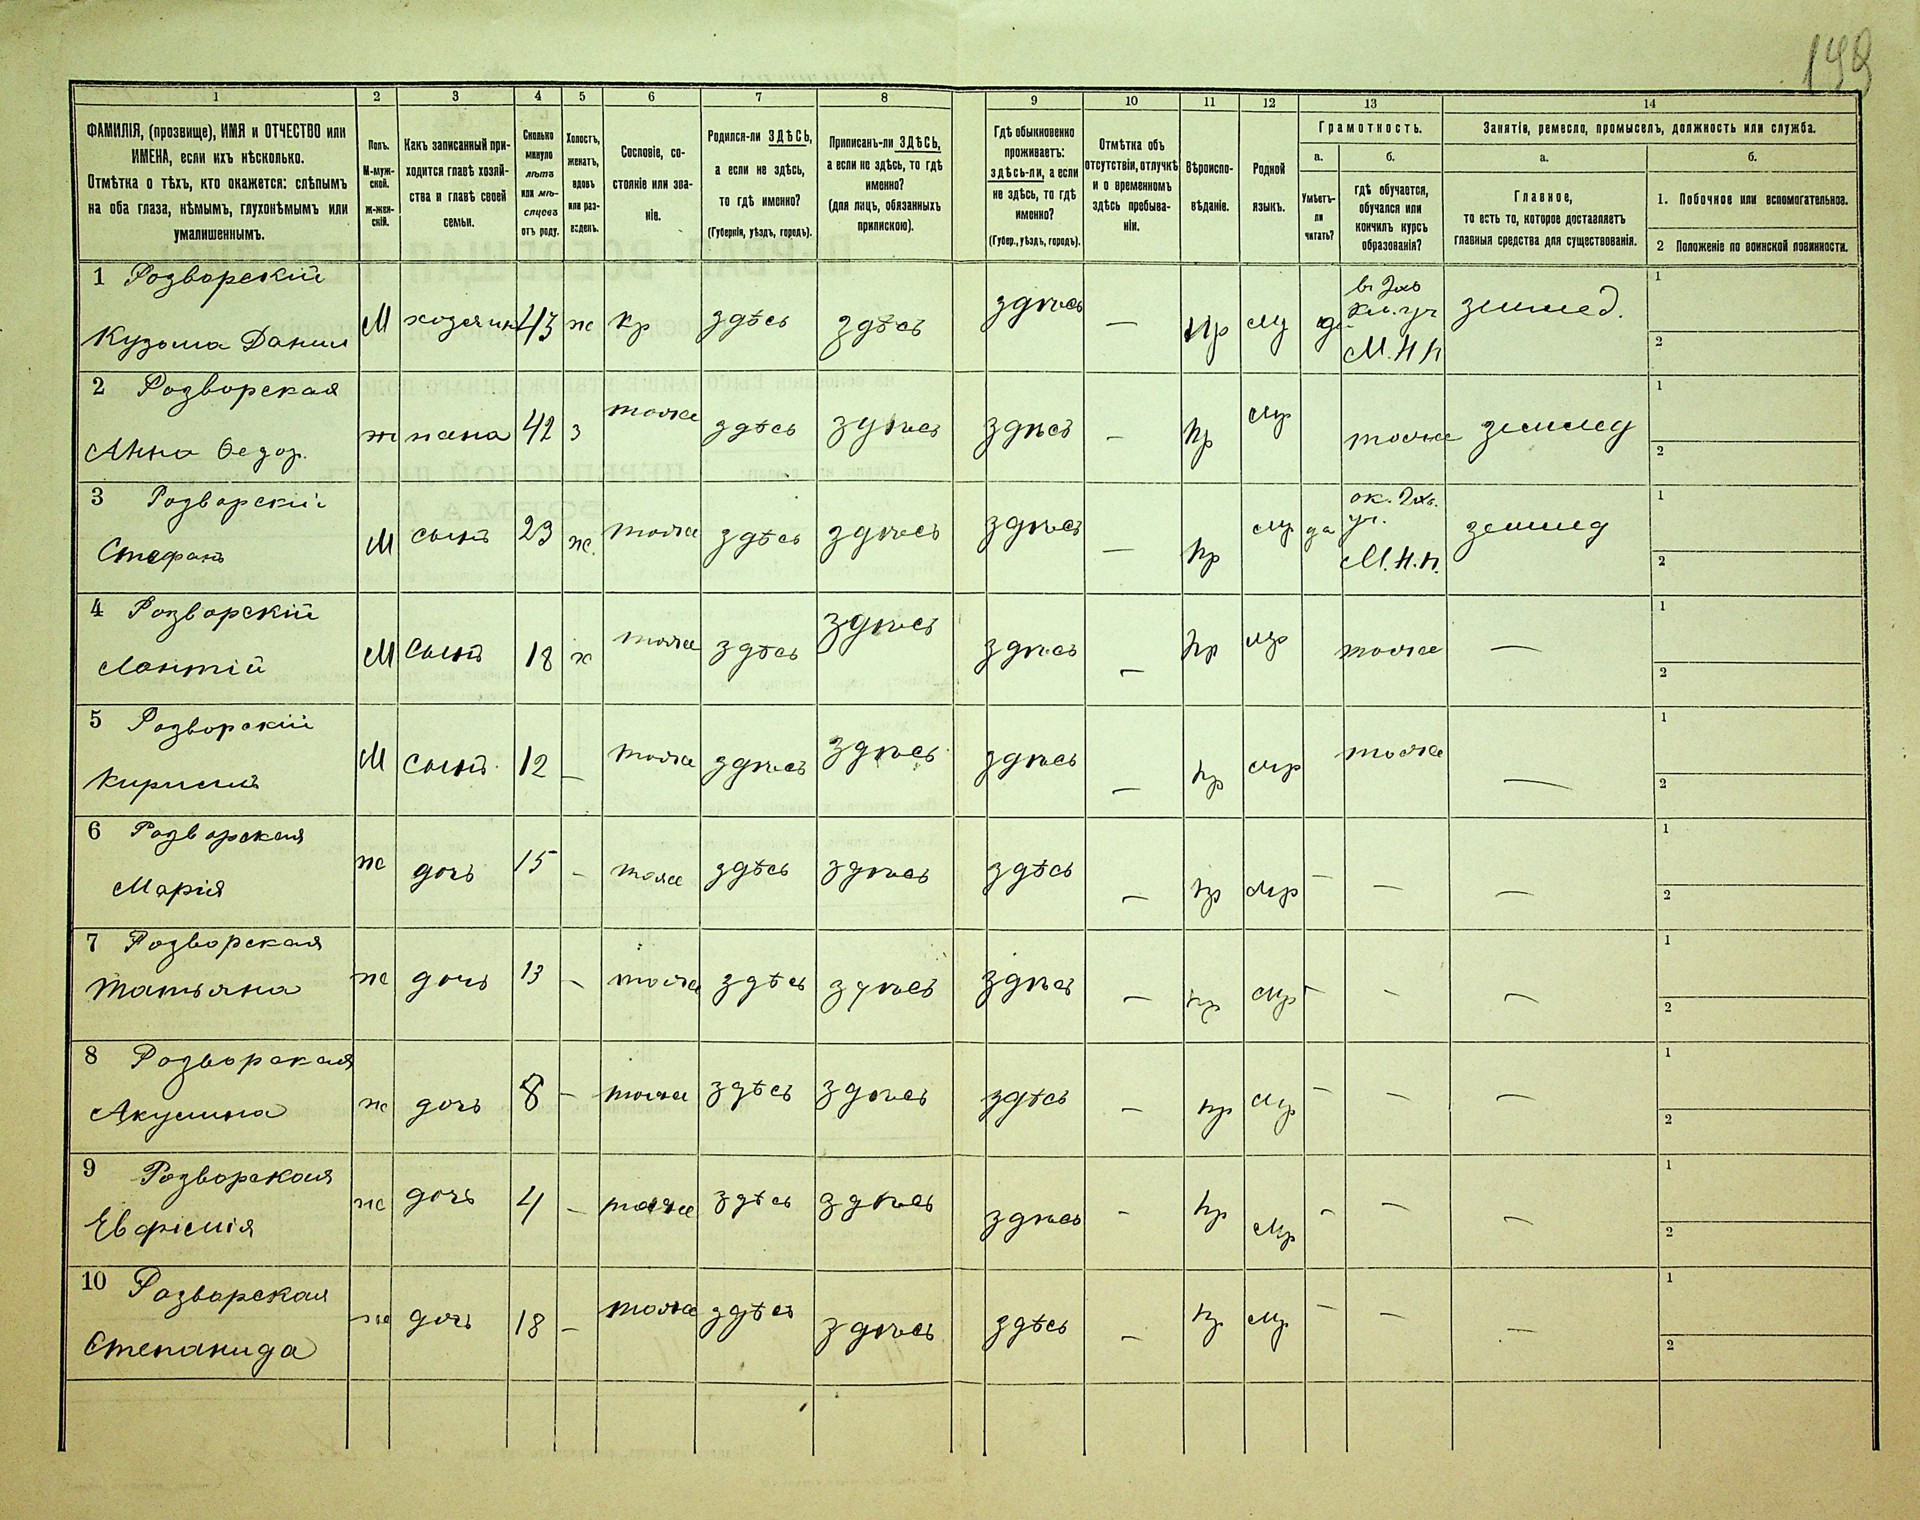 199
1
2
3
4
5
6
7
8
9
10
11
12
13
14
ФАМИЛІЯ, (прозвище), ИМЯ и ОТЧЕСТВО или
ИМЕНА, если ихъ нѣсколько.
Отмѣтка о тѣхъ, кто окажется: слѣпымъ
на оба глаза, нѣмымъ, глухонѣмымъ или
умалишеннымъ.
Полъ.
М-муж-
ской.
ж-жен-
скій.
Какъ записанный при-
ходится главѣ хозяй-
ства и главѣ своей
семьи.
Сколько
минуло
лѣтъ
или мѣ-
сяцевъ
отъ роду.
Холостъ,
женатъ,
вдовъ
или раз-
веденъ.
Сословіе, со-
стояніе или зва-
ніе.
Родился-ли ЗДѢСЬ,
а если не здѣсь,
то гдѣ именно?
(Губернія, уѣздъ, городъ).
Приписанъ-ли ЗДѢСЬ,
а если не здѣсь, то гдѣ
именно?
(для лицъ, обязанныхъ
припискою).
Гдѣ обыкновенно
проживаетъ:
здѣсь-ли, а если
не здѣсь, то гдѣ
именно?
(Губер., уѣздъ, городъ).
Отмѣтка объ
отсутствіи, отлучкѣ
и о временномъ
здѣсь пребыва-
ніи.
Вѣроиспо-
вѣданіе.
Родной
языкъ.
Грамотность.
а.
б.
Умѣетъ-
ли
читать?
гдѣ обучается,
обучался или
кончилъ курсъ
образованія?
Занятія, ремесло, промыселъ, должность или служба.
а.
б.
Главное,
то есть то, которое доставляетъ
главныя средства для существованія.
1. Побочное или вспомогательное.
2 Положеніе по воинской повинности.
1 Розворскій
Кузьма Данил
М хозяинъ 43 ж кр здѣсь здѣсь здѣсь — пр мр да
М.Н.П
земмед.
1
2
2 Розворская
Анна Ѳедор.
ж жена 42 з тоже здѣсь здѣсь здѣсь — пр мр тоже земмед
1
2
3 Розворскій
Стефанъ
М сынъ 23 ж. тоже здѣсь здѣсь здѣсь — пр мр да
уч.
М.Н.П.
земмед
1
2
4 Розворскій
Леонтій
М сынъ 18 х тоже здѣсь здѣсь здѣсь — пр мр тоже —
1
2
5 Розворскій
Кирилъ
М сынъ 12 — тоже здѣсь здѣсь здѣсь — пр мр тоже —
1
2
6 Розворская
Марія
ж дочь 15 — тоже здѣсь здѣсь здѣсь — пр мр — — —
1
2
7 Розворская
Татьяна
ж дочь 13 — тоже здѣсь здѣсь здѣсь — пр мр — — —
1
2
8 Розворская
Акулина
ж дочь 8 — тоже здѣсь здѣсь здѣсь — пр мр — — —
1
2
9 Розворская
Евфімія
ж дочь 4 — тоже здѣсь здѣсь здѣсь — пр мр — — —
1
2
10 Розворская
Степанида
ж дочь 18 — тоже здѣсь здѣсь здѣсь — пр мр — — —
1
2